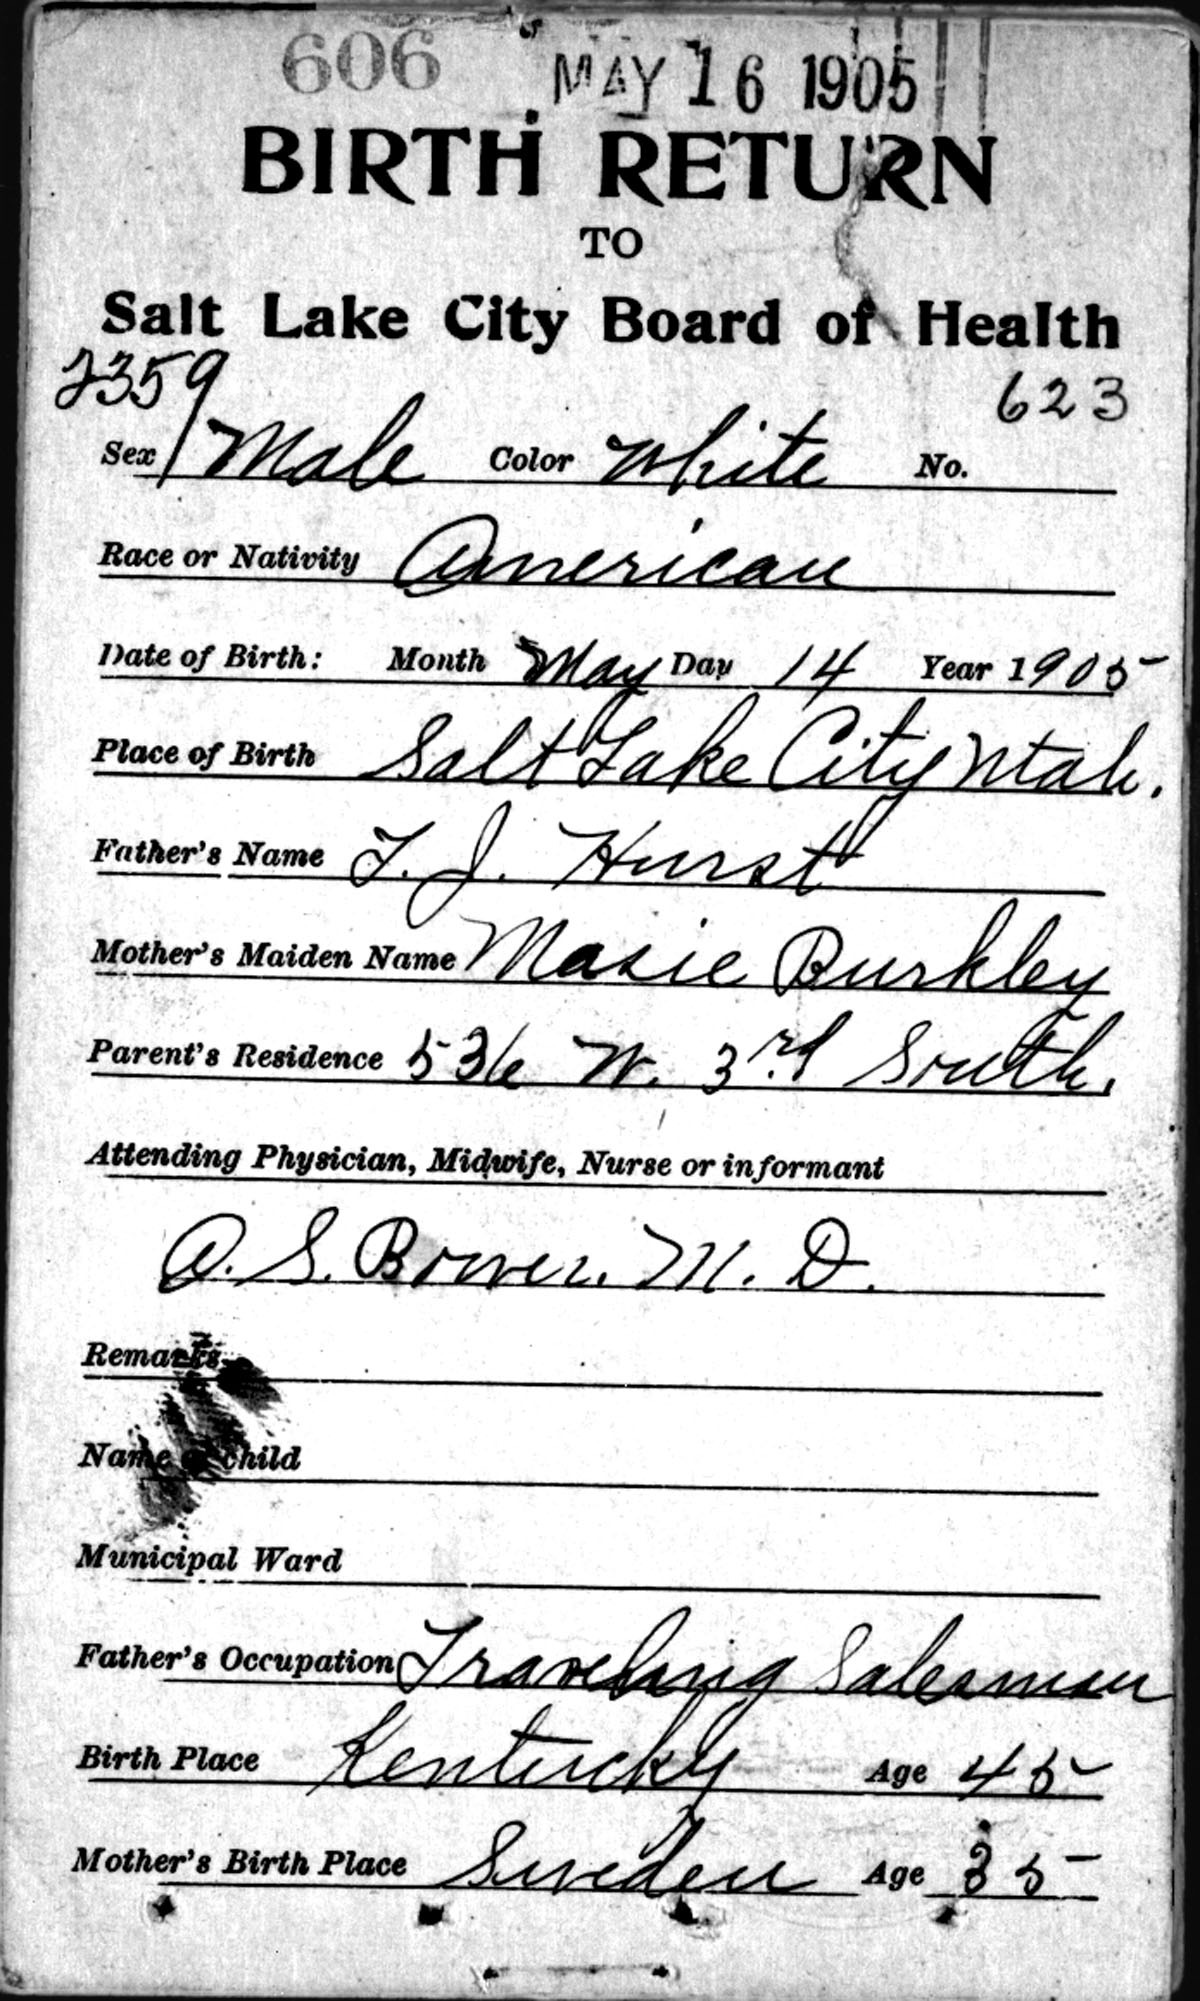 606 MAY 16 1905
BIRTH RETURN
TO
Salt Lake City Board of Health
2359 623
Sex Male Color White No.
Race or Nativity American
Date of Birth: Month May Day 14 Year 1905
Place of Birth Salt Lake City Utah.
Father's Name T. J. Hurst
Mother's Maiden Name Masie Burkley
Parent's Residence 536 W. 3rd South.
Attending Physician, Midwife, Nurse or informant
A. S. Bower. M. D.
Remarks
Name of child
Municipal Ward
Father's Occupation Traveling Salesman
Birth Place Kentucky Age 45
Mother's Birth Place Sweden Age 35